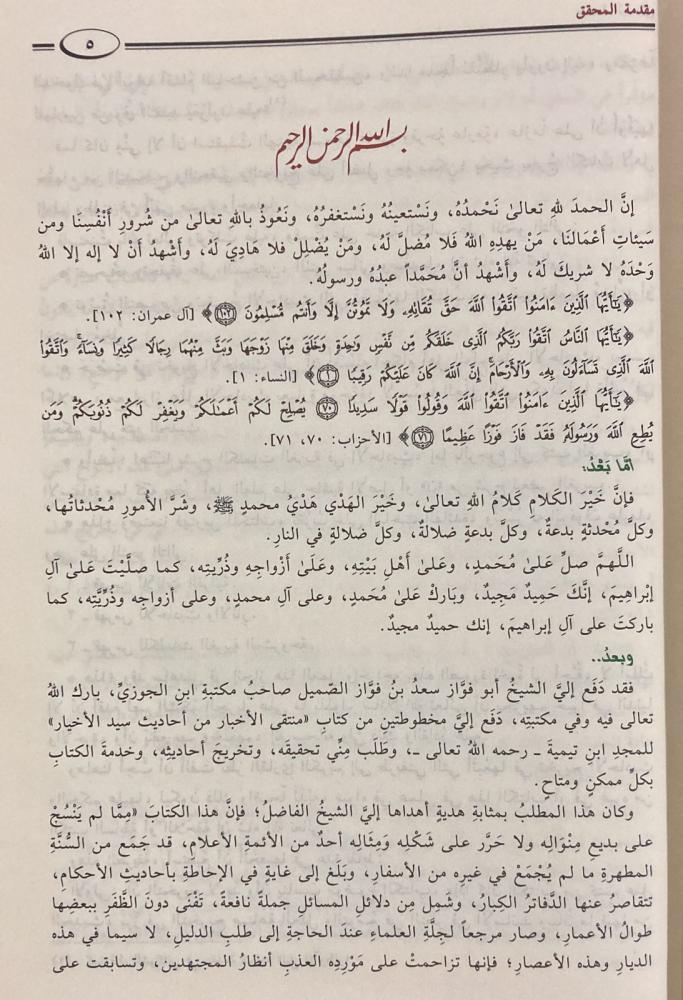 مقدمة المحقق
٥
بسم الله الرحمن الرحيم
إنَّ الحمدَ للهِ تعالىٰ نَحْمدُهُ، ونَسْتعينُهُ ونَسْتغفرُهُ، ونَعُوذُ باللهِ تعالىٰ من شُرورِ أَنْفُسِنَا ومن
سَيئاتِ أَعْمَالنَا، مَنْ يهدِهِ اللهُ فَلا مُضلَّ لَهُ، ومَنْ يُضْلِلْ فلا هَادِيَ لَهُ، وأَشْهدُ أَنْ لا إله إلا اللهُ
وَحْدَهُ لا شريكَ لَهُ، وأَشْهدُ أنَّ مُحَمَّداً عبدُهُ ورسولُهُ.
﴿يَٰٓأَيُّهَا ٱلَّذِينَ ءَامَنُوا۟ ٱتَّقُوا۟ ٱللَّهَ حَقَّ تُقَاتِهِۦ وَلَا تَمُوتُنَّ إِلَّا وَأَنتُم مُّسْلِمُونَ ١٠٢﴾ [آل عمران: ١٠٢].
﴿يَٰٓأَيُّهَا ٱلنَّاسُ ٱتَّقُوا۟ رَبَّكُمُ ٱلَّذِى خَلَقَكُم مِّن نَّفْسٍ وَٰحِدَةٍ وَخَلَقَ مِنْهَا زَوْجَهَا وَبَثَّ مِنْهُمَا رِجَالًا كَثِيرًا وَنِسَآءً ۚ وَٱتَّقُوا۟
ٱللَّهَ ٱلَّذِى تَسَآءَلُونَ بِهِۦ وَٱلْأَرْحَامَ ۚ إِنَّ ٱللَّهَ كَانَ عَلَيْكُمْ رَقِيبًا ١﴾ [النساء: ١].
﴿يَٰٓأَيُّهَا ٱلَّذِينَ ءَامَنُوا۟ ٱتَّقُوا۟ ٱللَّهَ وَقُولُوا۟ قَوْلًا سَدِيدًا ٧٠ يُصْلِحْ لَكُمْ أَعْمَٰلَكُمْ وَيَغْفِرْ لَكُمْ ذُنُوبَكُمْ ۗ وَمَن
يُطِعِ ٱللَّهَ وَرَسُولَهُۥ فَقَدْ فَازَ فَوْزًا عَظِيمًا ٧١﴾ [الأحزاب: ٧٠، ٧١].
أمَّا بَعْدُ:
فإنَّ خَيْرَ الكَلامِ كَلامُ اللهِ تعالىٰ، وخَيْرَ الهَدْيِ هَدْيُ محمدٍ ﷺ، وشَرَّ الأُمورِ مُحْدثاتُها،
وكلَّ مُحْدثةٍ بدعةٌ، وكلَّ بدعةٍ ضلالةٌ، وكلَّ ضلالةٍ في النارِ.
اللَّهمَّ صلِّ عَلىٰ مُحَمدٍ، وعَلىٰ أَهْلِ بَيْتِهِ، وعَلَىٰ أَزْواجِهِ وذُرِّيتِه، كما صلَّيْتَ عَلىٰ آلِ
إبْراهِيمَ، إنَّكَ حَمِيدٌ مَجِيدٌ، وبَارِكْ عَلىٰ مُحَمدٍ، وعلى آلِ محمدٍ، وعلى أزواجِه وذُرِّيَّتِه، كما
باركتَ على آلِ إبراهيمَ، إنك حميدٌ مجيدٌ.
وبعدُ..
فقد دَفَع إليَّ الشيخُ أبو فوَّاز سعدُ بنُ فوَّاز الصّميل صاحبُ مكتبةِ ابنِ الجوزيِّ، بارك اللهُ
تعالى فيه وفي مكتبتِه، دَفَع إليَّ مخطوطتينِ من كتابِ «منتقى الأخبار من أحاديث سيد الأخيار»
للمجدِ ابنِ تيميةَ ـ رحمه اللهُ تعالى ـ، وطَلَب مِنِّي تحقيقَه، وتخريجَ أحاديثِه، وخدمةَ الكتابِ
بكلِّ ممكنٍ ومتاحٍ.
وكان هذا المطلبُ بمثابةِ هديةٍ أهداها إليَّ الشيخُ الفاضلُ؛ فإنَّ هذا الكتابَ «مِمَّا لم يَنْسُجْ
على بديعِ مِنْوَالِه ولا حَرَّر على شَكْلِه ومِثَالِه أحدٌ من الأئمةِ الأعلامِ، قد جَمَع من السُّنَّةِ
المطهرةِ ما لم يُجْمَعْ في غيرِه من الأسفارِ، وبَلَغ إلى غايةٍ في الإحاطةِ بأحاديثِ الأحكامِ،
تتقاصرُ عنها الدَّفاترُ الكِبارُ، وشَمِل مِن دلائلِ المسائلِ جملةً نافعةً، تَفْنَى دونَ الظَّفَرِ ببعضِها
طوالُ الأعمارِ، وصار مرجعاً لجِلَّةِ العلماءِ عندَ الحاجةِ إلى طلبِ الدليلِ، لا سيما في هذه
الديارِ وهذه الأعصارِ؛ فإنها تزاحمتْ على مَوْرِدِه العذبِ أنظارُ المجتهدين، وتسابقت على